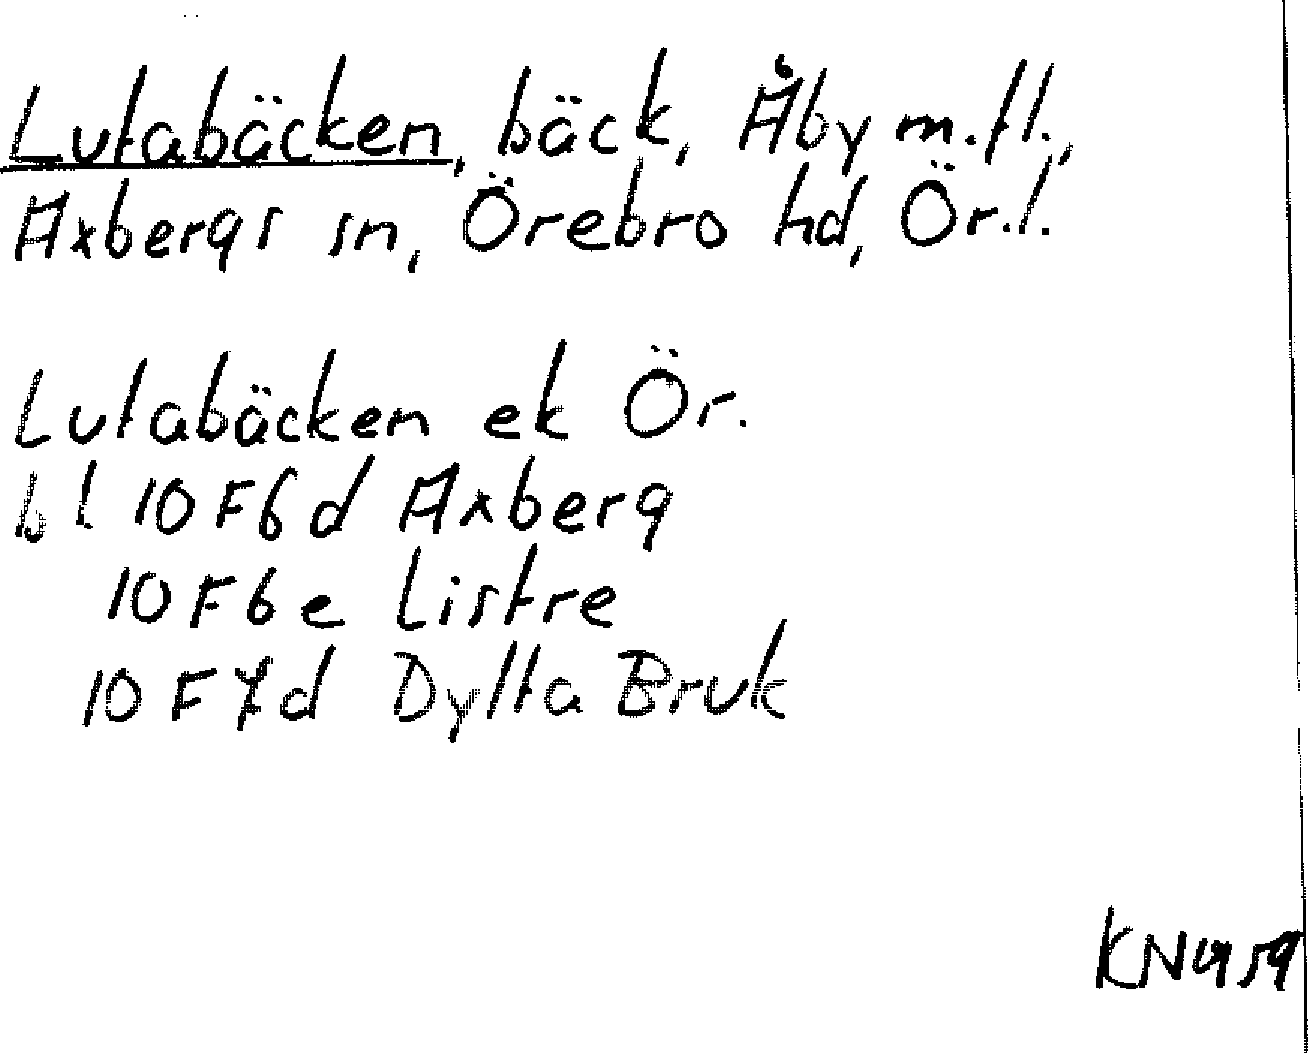 Lutabäcken, bäck, Åby m.fl.,
Axbergs sn, Örebro hd, Ör.l.
Lutabäcken ek Ör.
bl 10F6d Axberg
10F6e Listre
10F7d Dylta Bruk